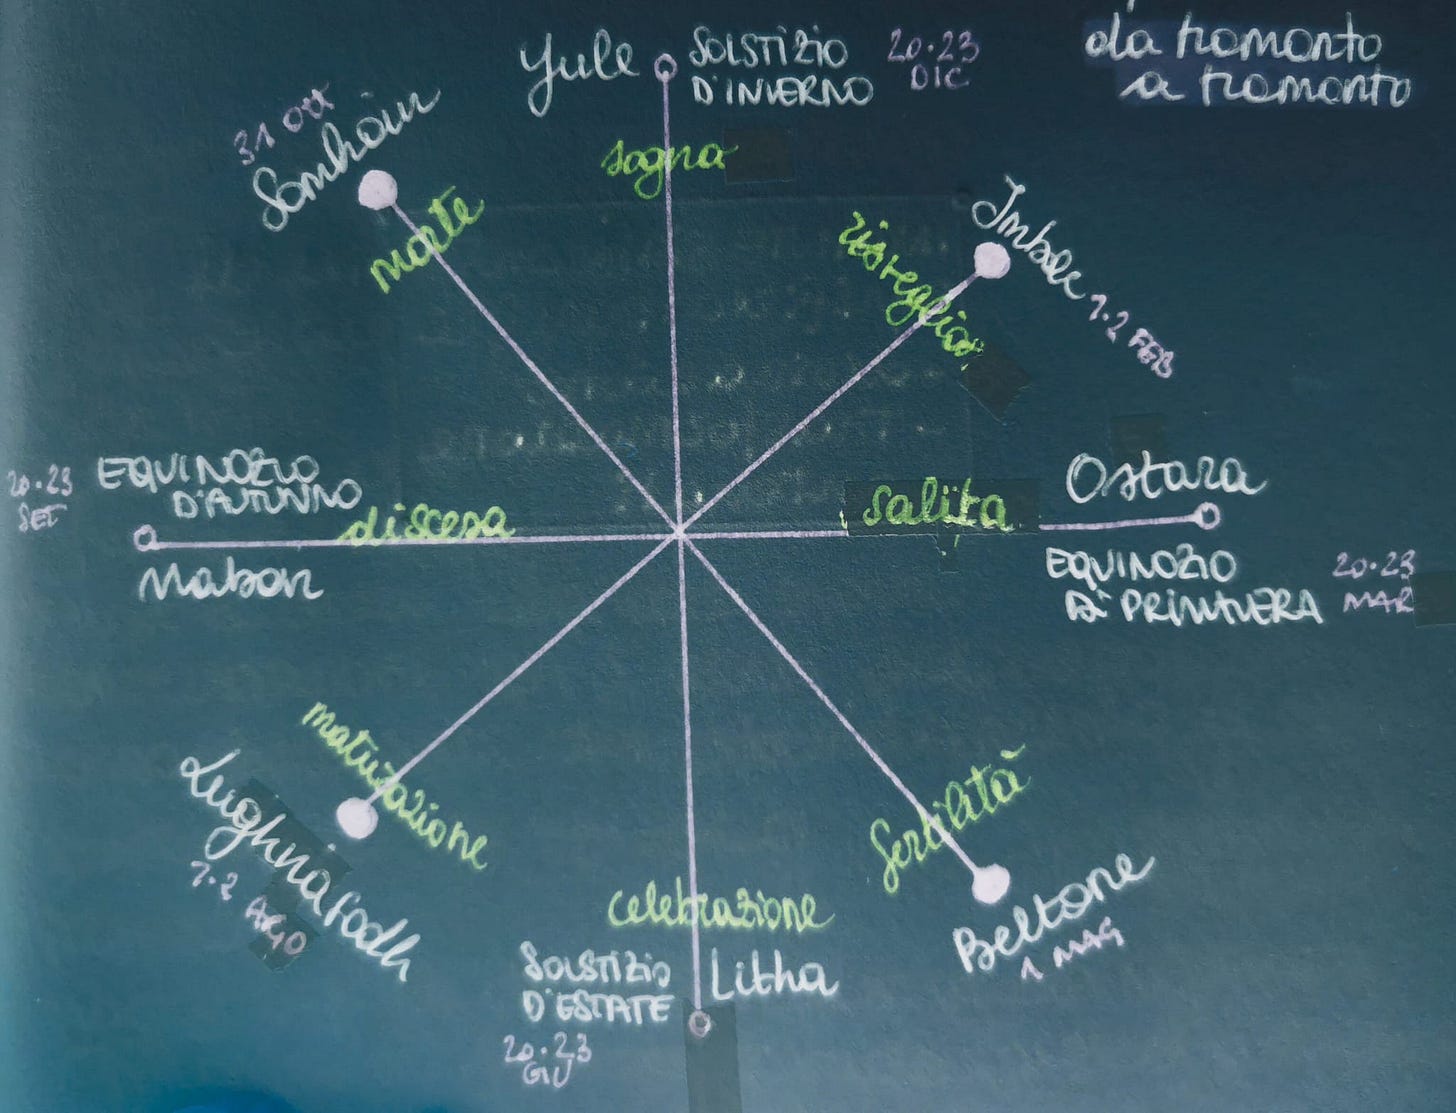 Yule
SOLSTIZIO
D'INVERNO
20.23
DIC
da tramonto
a tramonto
sogna
31 OTT
Samhain
morte
Imbolc
1.2 FEB
risveglio
20.23
SET
EQUINOZIO
D'AUTUNNO
discesa
Mabon
salita
Ostara
EQUINOZIO
DI PRIMAVERA
20.23
MAR
maturazione
Lughnasadh
1.2 AGO
fertilità
Beltane
1 MAG
celebrazione
SOLSTIZIO
D'ESTATE
Litha
20.23
GIU